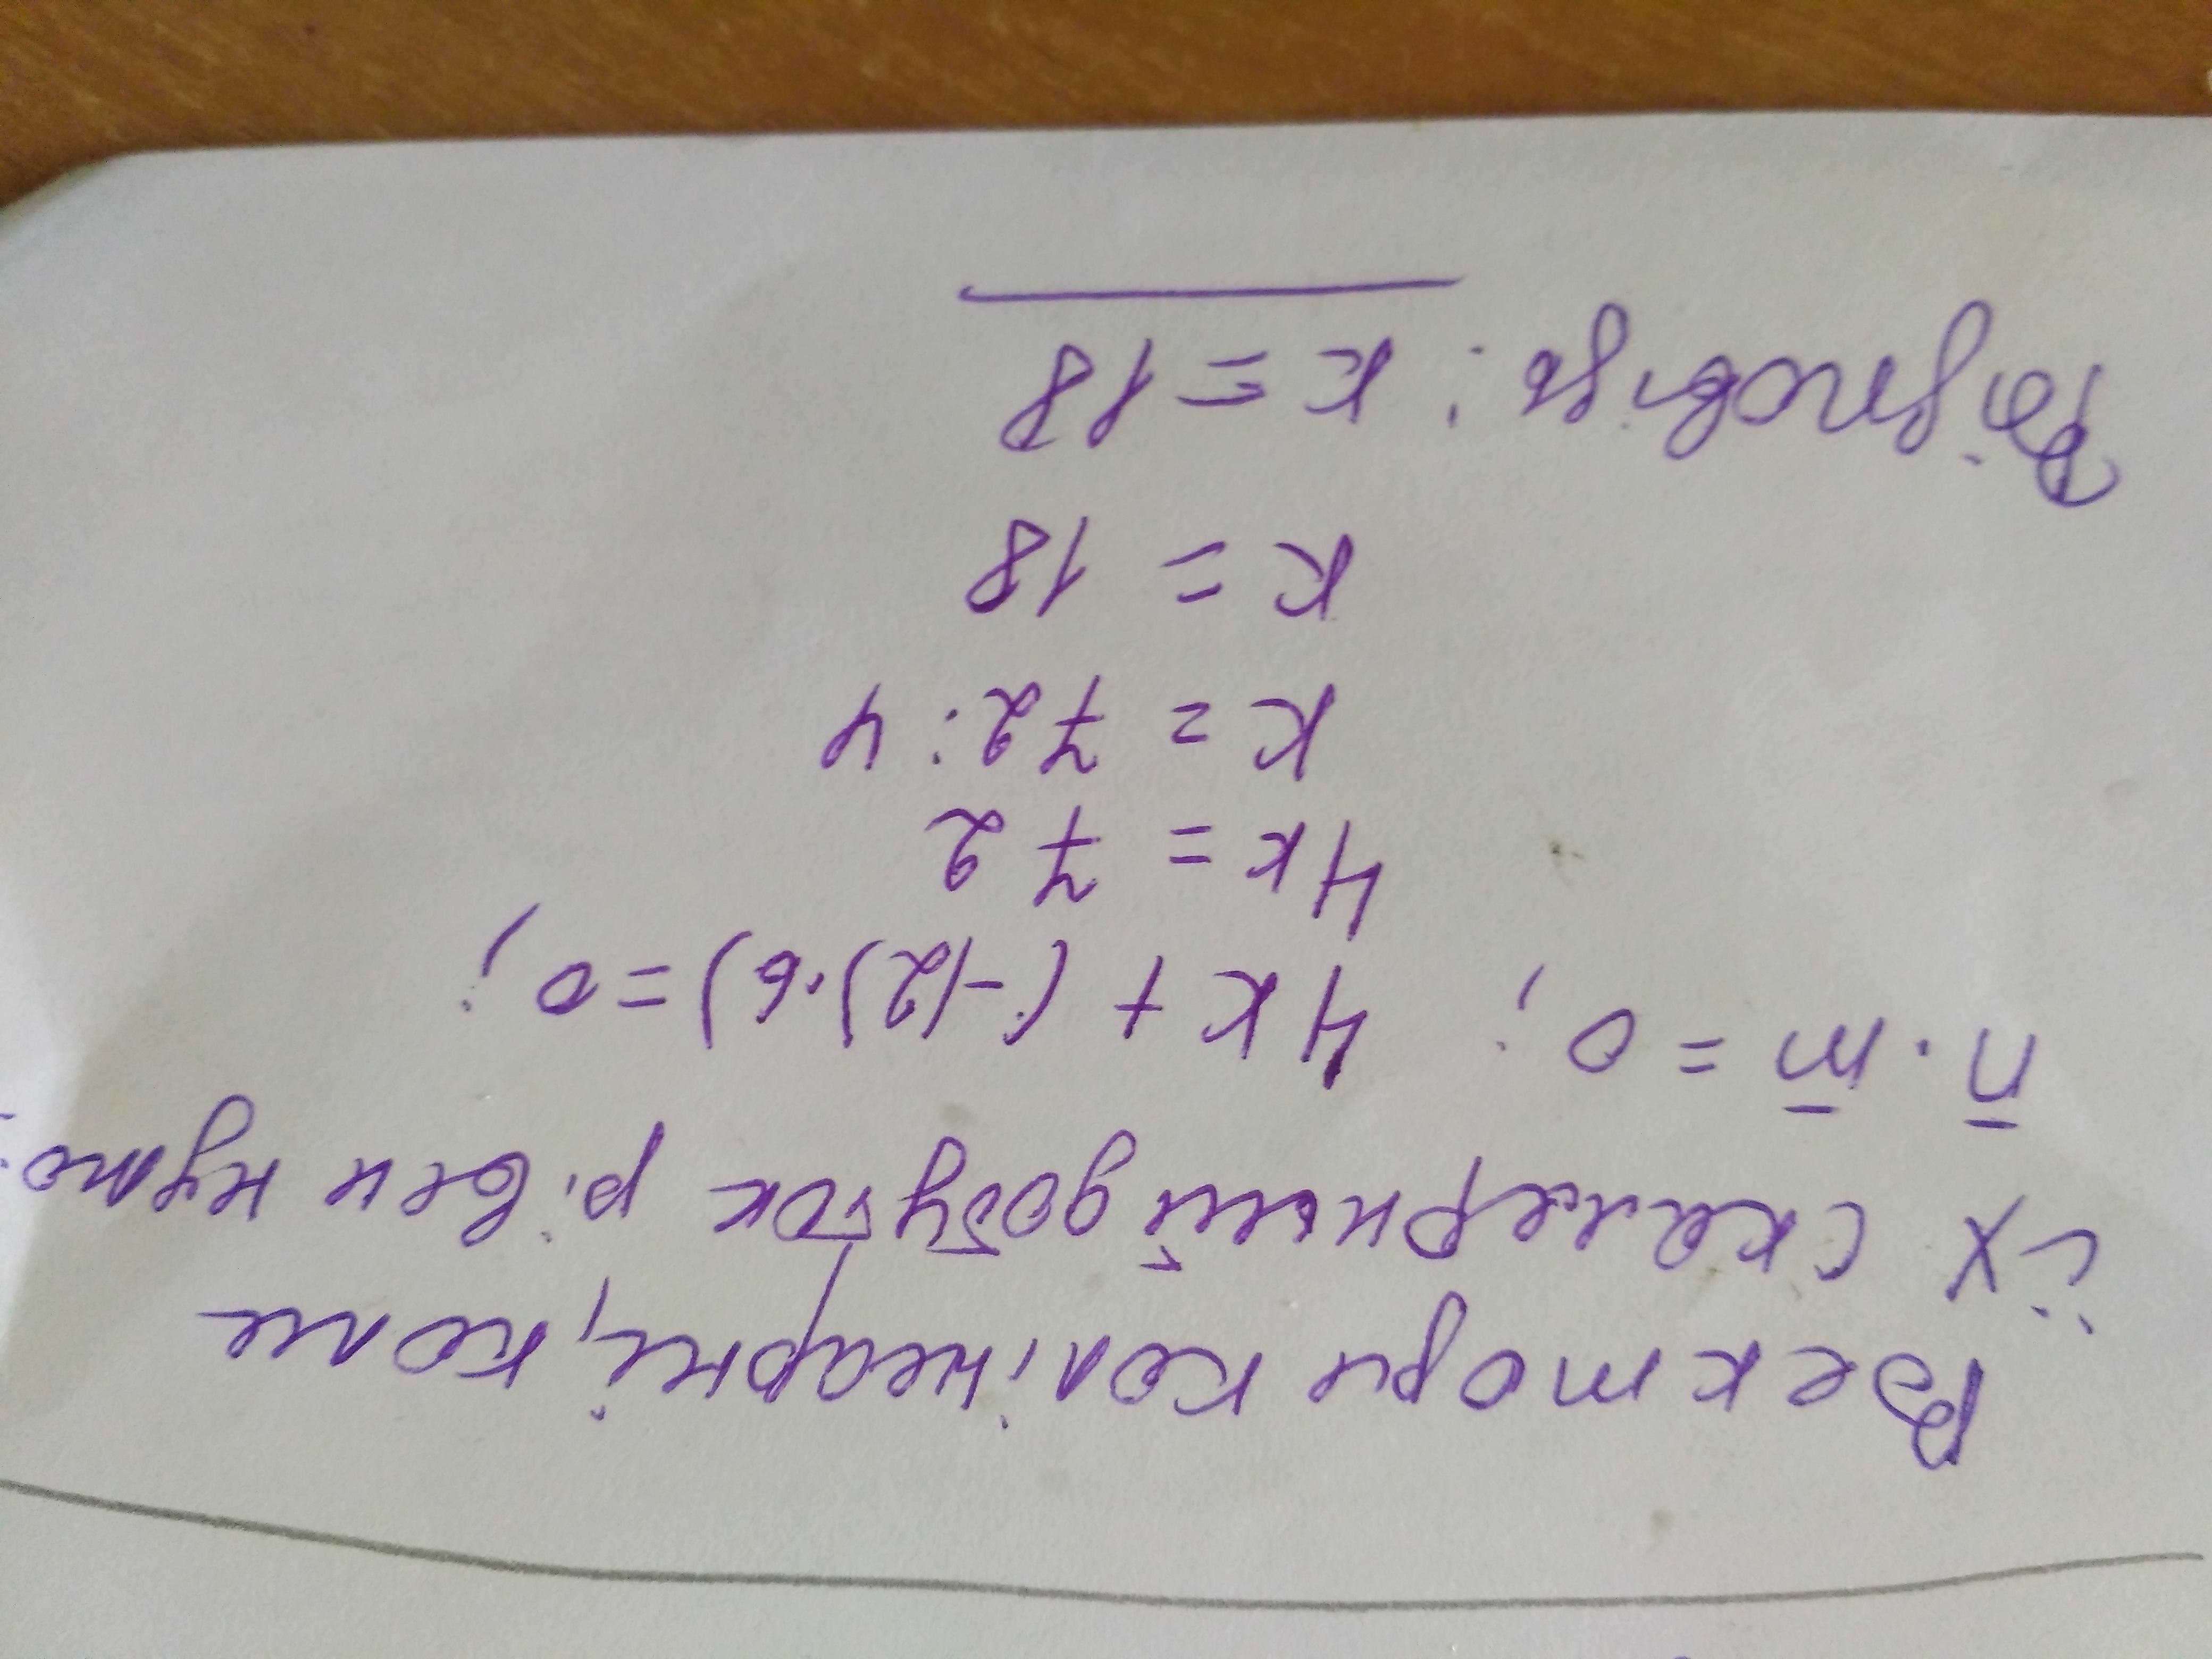 Вектори колінеарні, коли
їх скалярний добуток рівен нулю:
n̅ · m̅ = 0; 4к + (-12)·6) = 0;
4к = 72
к = 72:4
к = 18
Відповідь: к = 18